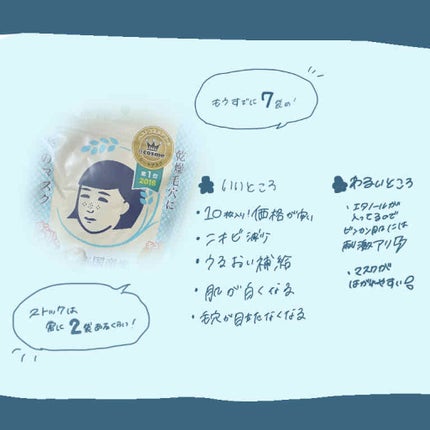 もうすでに 7袋め!
乾燥毛穴に
のマスク
@cosme
第1位
2016
ストックは
常に 2袋あるくらい!
いいところ
・10枚入り!価格が安い
・ニキビ減り
・うるおい補給
・肌が白くなる
・毛穴が目立たなくなる
わるいところ
・エタノールが
入ってるので
ビンカン肌には
刺激アリ
・マスクが
はがれやすい